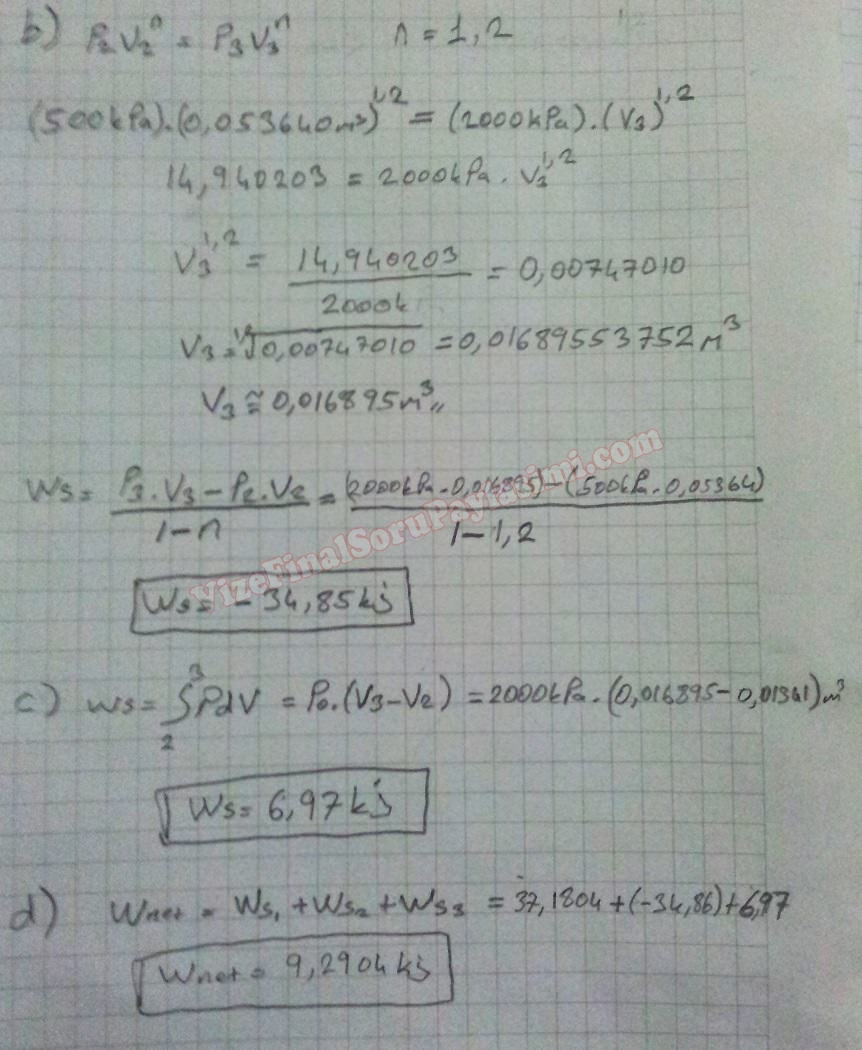 b) P₂V₂ⁿ = P₃V₃ⁿ n = 1,2
(500kPa).(0,053640m³)^1,2 = (2000kPa).(V₃)^1,2
14,940203 = 2000kPa . V₃^1,2
V₃^1,2 = 14,940203 / 2000k = 0,00747010
V₃ = ^1,2√0,00747010 = 0,01689553752 m³
V₃ ≅ 0,016895m³,,
Ws = P₃.V₃ - P₂.V₂ / 1-n = (2000kPa.0,016895) - (500kPa.0,05364) / 1-1,2
VizeFinalSoruPaylasimi.com
Ws = -34,85 kj
c) Ws = ∫₂³ PdV = P₀.(V₃-V₂) = 2000kPa.(0,016895-0,01341)m³
Ws = 6,97 kj
d) Wnet = Ws₁ + Ws₂ + Ws₃ = 37,1804 + (-34,86) + 6,97
Wnet = 9,2904 kj